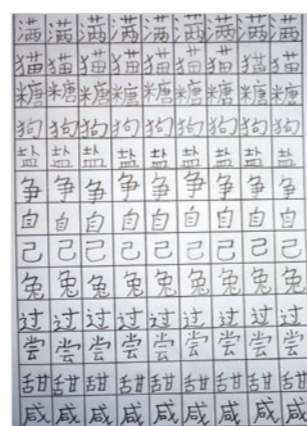 满满满满满满满满满
猫猫猫猫猫猫猫猫猫
糖糖糖糖糖糖糖糖糖
狗狗狗狗狗狗狗狗狗
盐盐盐盐盐盐盐盐盐
争争争争争争争争争
自自自自自自自自自
己己己己己己己己己
兔兔兔兔兔兔兔兔兔
过过过过过过过过过
尝尝尝尝尝尝尝尝尝
甜甜甜甜甜甜甜甜甜
咸咸咸咸咸咸咸咸咸